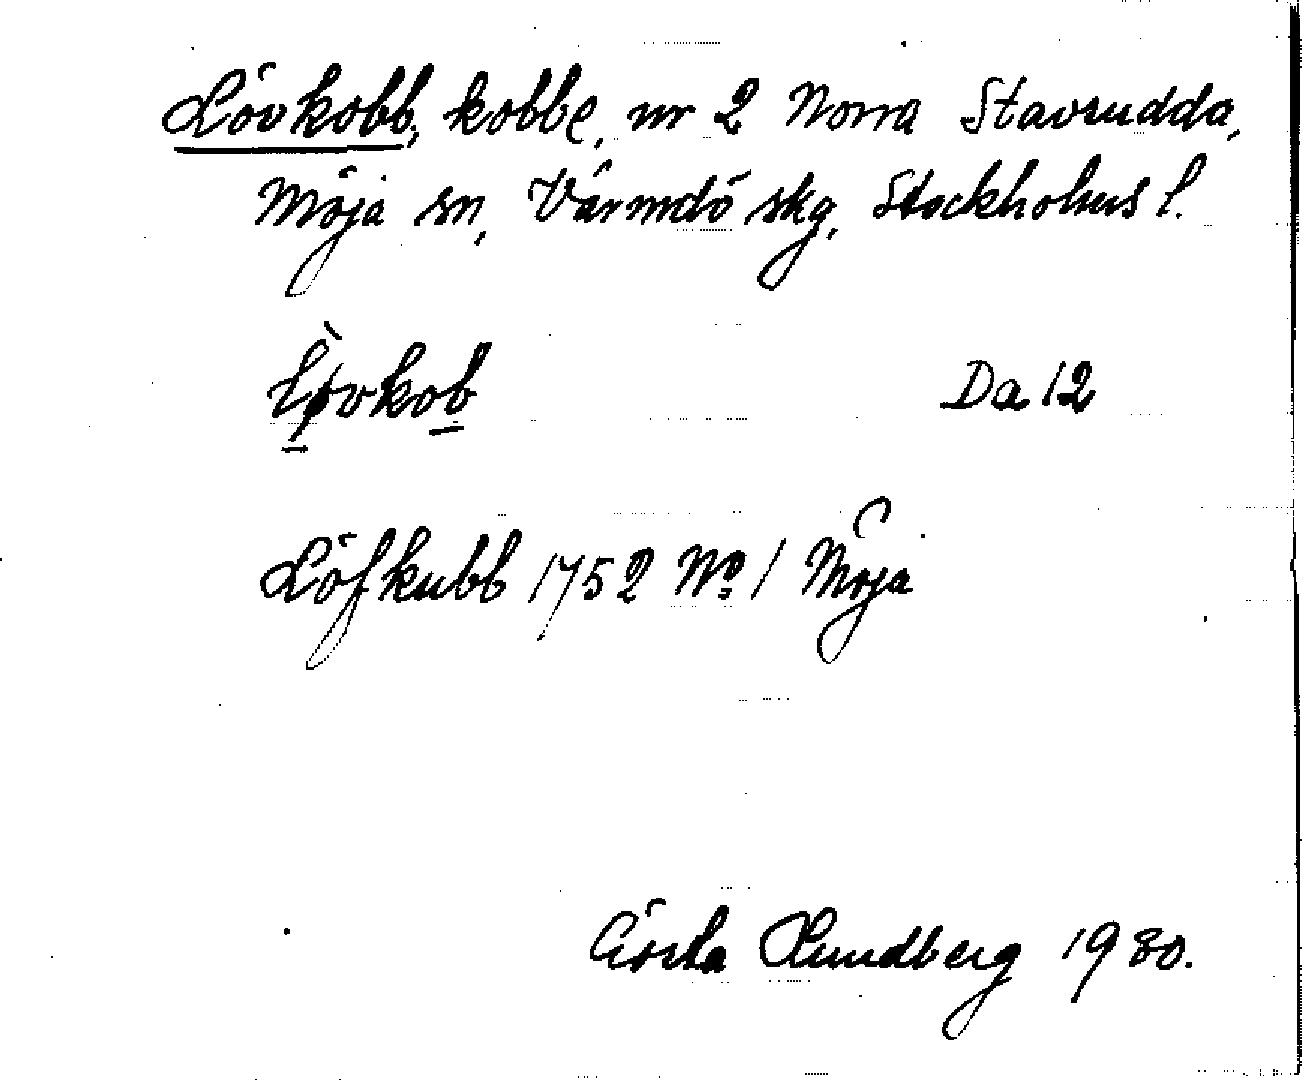 Lövkobb, kobbe, nr 2 Norra Stavsudda,
Möja sn, Värmdö skg, Stockholms l.
Lø̀vkob Da 12
Löfkubb 1752 No 1 Möja
Gösta Lundberg 1980.